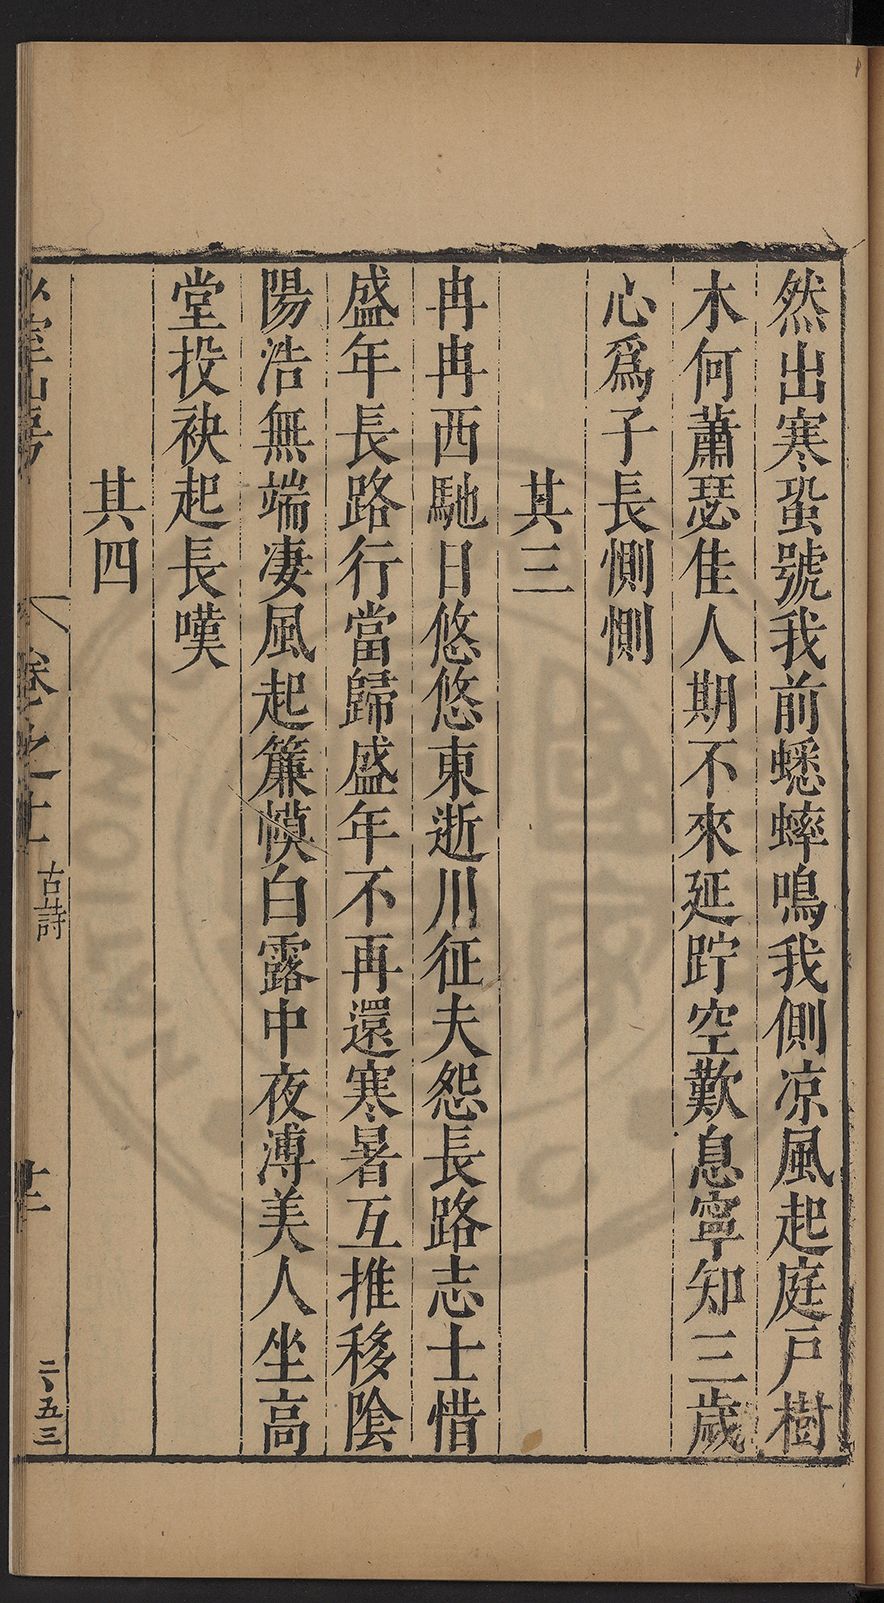 然出寒蛩號我前蟋蟀鳴我側凉風起庭戸樹
木何蕭瑟佳人期不來延跨空歎息寧知三歲
心爲子長惻惻
其三
冉冉西馳日悠悠東逝川征夫怨長路志士惜
盛年長路行當歸盛年不再還寒暑互推移陰
陽浩無端凄風起簾幙白露中夜溥美人坐高
堂投袂起長嘆
其四
卷之十 古詩
二、五三